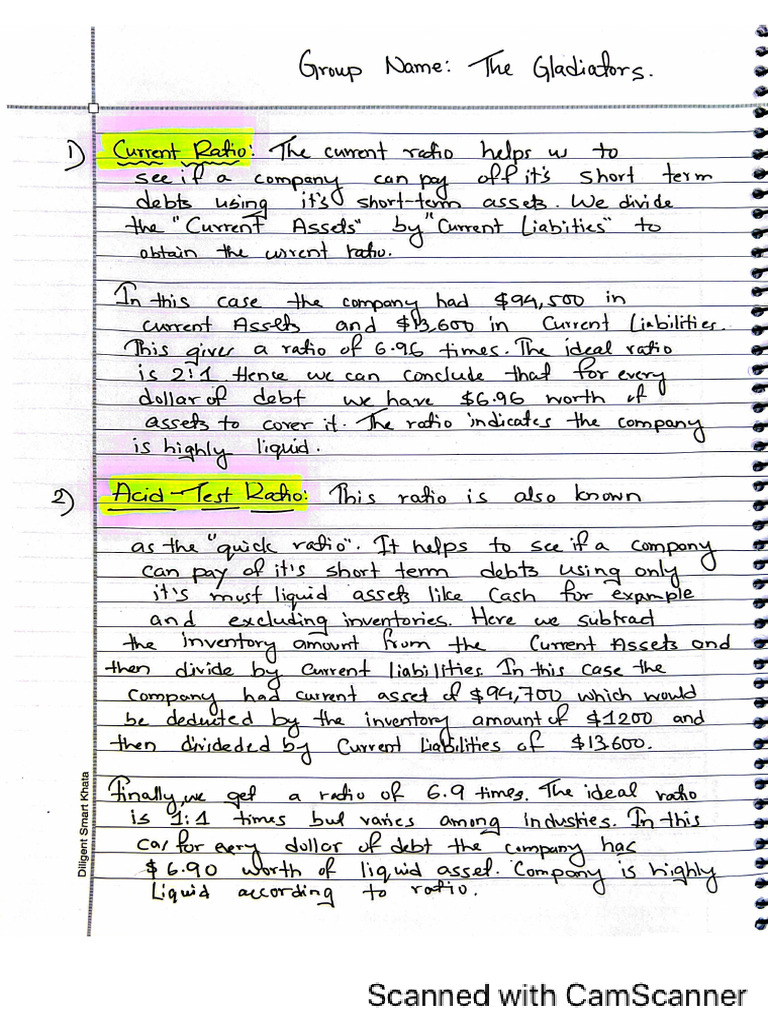 Group Name: The Gladiators.
1) Current Ratio: The current ratio helps us to
see if a company can pay off it's short term
debts using it's short-term assets. We divide
the "Current Assets" by "Current Liabities" to
obtain the current ratio.
In this case the company had $94,500 in
current Assets and $13,600 in Current Liabilities.
This gives a ratio of 6.96 times. The ideal ratio
is 2:1. Hence we can conclude that for every
dollar of debt we have $6.96 worth of
assets to cover it. The ratio indicates the company
is highly liquid.
2) Acid-Test Ratio: This ratio is also known
as the "quick ratio". It helps to see if a company
can pay of it's short term debts using only
it's most liquid assets like Cash for example
and excluding inventories. Here we subtract
the inventory amount from the Current Assets and
then divide by current liabilities. In this case the
company had current asset of $94,700 which would
be deducted by the inventory amount of $1200 and
then divideded by Current Liabilities of $13600.
Finally, we get a ratio of 6.9 times. The ideal ratio
is 1:1 times but varies among industies. In this
for every dollar of debt the company has
$6.90 worth of liquid asset. Company is highly
Liquid according to ratio.
Diligent Smart Khata
Scanned with CamScanner